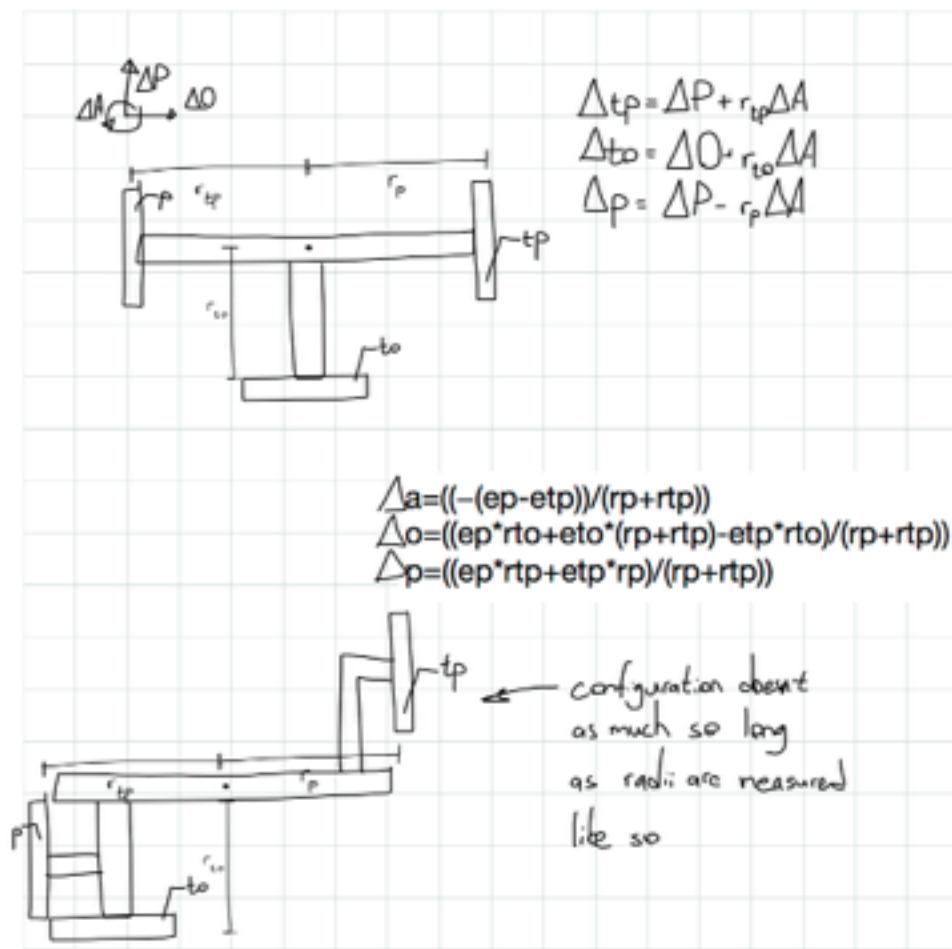 ΔP
ΔA ΔO
Δtp = ΔP + r_tp ΔA
Δto = ΔO + r_to ΔA
Δp = ΔP - r_p ΔA
r_tp r_p
p
tp
r_to
to
Δa=((-(ep-etp))/(rp+rtp))
Δo=((ep*rto+eto*(rp+rtp)-etp*rto)/(rp+rtp))
Δp=((ep*rtp+etp*rp)/(rp+rtp))
tp
configuration
as much so long
as radii are measured
like so
r_tp r_p
p
r_to
to